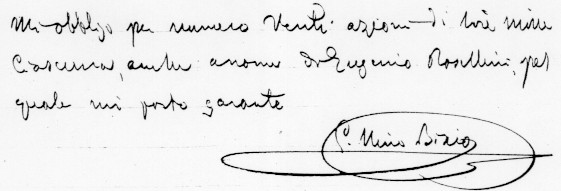 Mi obbligo per numero Venti azioni di lire mille
Ciascuna, anche a nome di Eugenio Rosellini, pel
quale mi porto garante
G. Nino Bixio